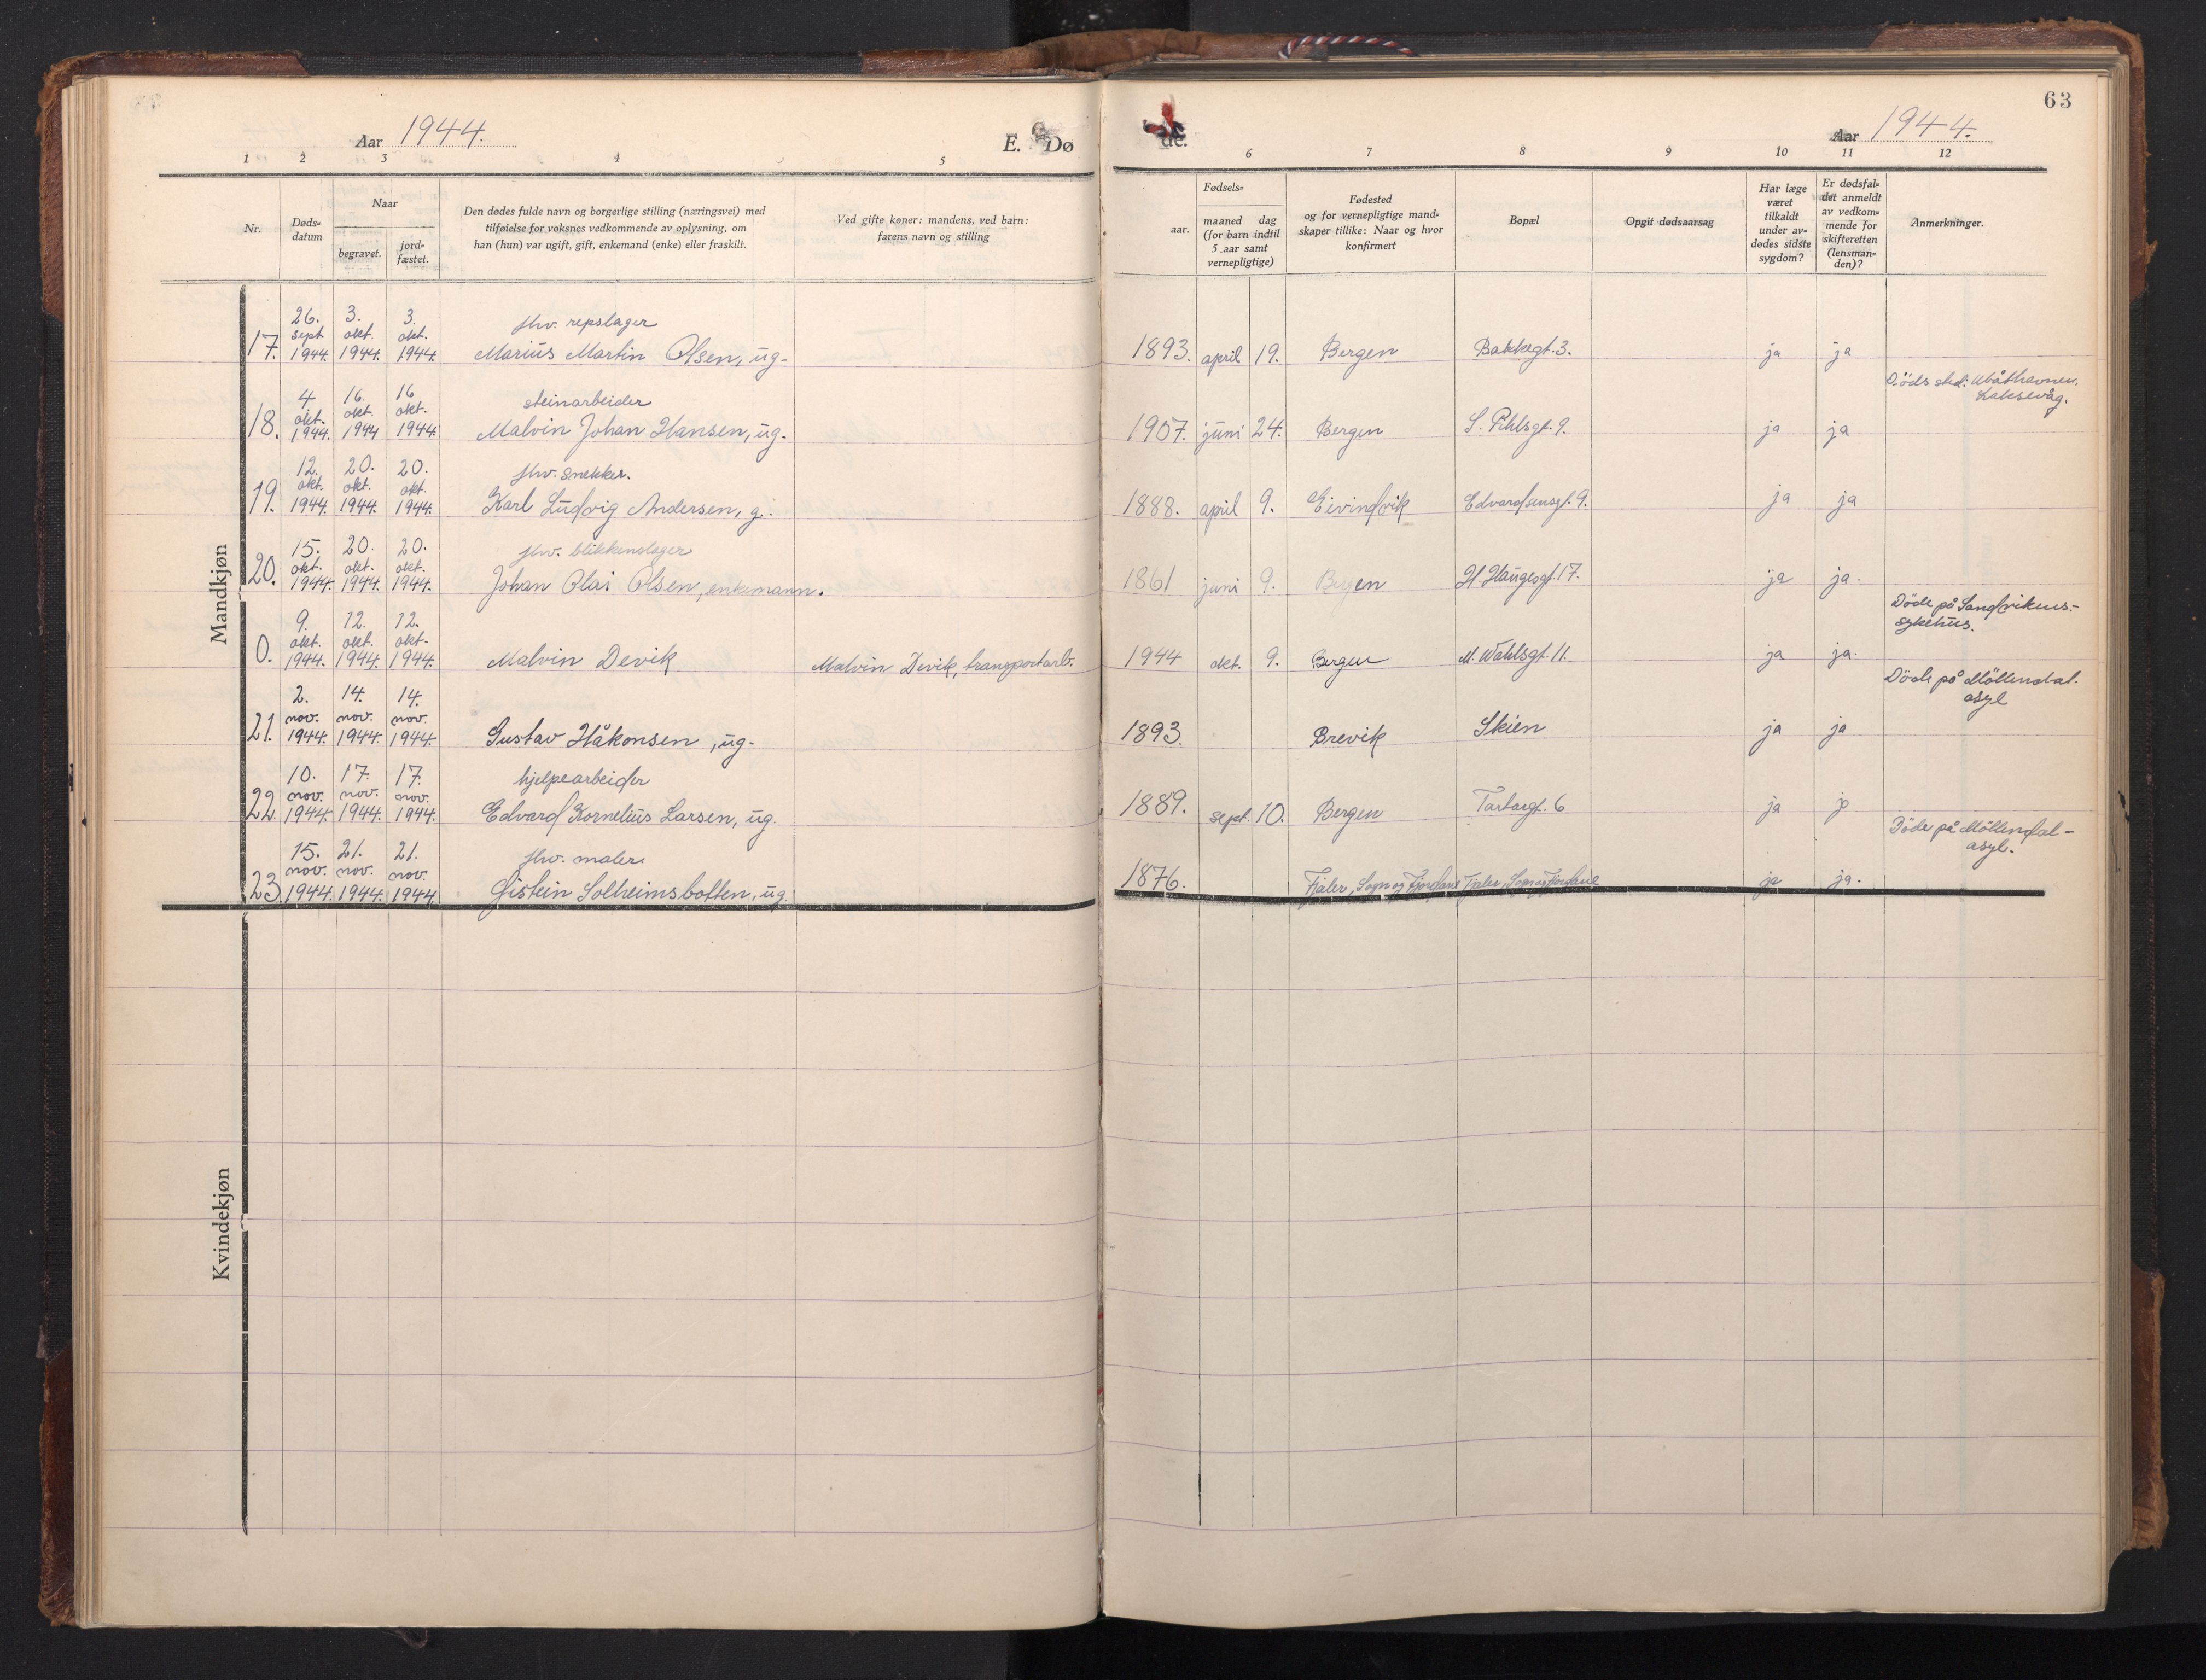 63
Aar 1944.
E. Dø
de.
Aar 1944.
1 2 3 4 5 6 7 8 9 10 11 12
Nr.
Døds-
datum
Naar
begravet.
jord-
fæstet.
Den dødes fulde navn og borgerlige stilling (næringsvei) med
tilføielse for voksnes vedkommende av oplysning, om
han (hun) var ugift, gift, enkemand (enke) eller fraskilt.
Ved gifte koner: mandens, ved barn:
farens navn og stilling
aar.
Fødsels-
maaned dag
(for barn indtil
5 aar samt
vernepligtige)
Fødested
og for vernepligtige mand-
skaper tillike: Naar og hvor
konfirmert
Bopæl
Opgit dødsaarsag
Har læge
været
tilkaldt
under av-
dødes sidste
sygdom?
Er dødsfal-
det anmeldt
av vedkom-
mende for
skifteretten
(lensman-
den)?
Anmerkninger.
Mandkjøn
26. 3. 3. fhv. repslager
sept okt. okt.
17. 1944. 1944. 1944. Marius Martin Olsen, ug. 1893. april 19. Bergen Bakkegt. 3. ja ja
4 16. 16 steinarbeider Döds sted: Ubåthavnen,
okt. okt. okt. Laksevåg.
18. 1944. 1944 1944. Malvin Johan Hansen, ug. 1907. juni 24. Bergen S. Pihlsgt. 9. ja ja
12. 20. 20. fhv. snekker.
okt. okt. okt.
19. 1944. 1944. 1944. Karl Ludvig Andersen, g. 1888. april 9. Eivindvik Edvardsensgt. 9. ja ja
15. 20. 20. fhv. blikkenslager
okt. okt. okt.
20. 1944. 1944. 1944. Johan Olai Olsen, enkemann. 1861 juni 9. Bergen H. Haugesgt. 17. ja ja.
9. 12. 12. Döde på Sandvikens-
okt. okt. okt. sykehus.
0. 1944. 1944. 1944. Malvin Devik Malvin Devik, transportarb. 1944 okt. 9. Bergen M. Wahlsgt. 11. ja ja.
2. 14. 14. Döde på Möllendal
nov. nov. nov. asyl
21. 1944. 1944. 1944. Gustav Håkonsen, ug. 1893. Brevik Skien ja ja
10. 17. 17. hjelpearbeider
nov. nov. nov.
22. 1944. 1944. 1944. Edvard Kornelius Larsen, ug. 1889. sept. 10. Bergen Tartargt. 6 ja ja
15. 21. 21. fhv. maler Döde på Möllendal-
nov. nov. nov. asyl.
23. 1944. 1944. 1944 Gistein Solheimsbotten, ug. 1876. Fjaler, Sogn og Fjordane Fjaler, Sogn og Fjordane ja ja.
Kvindekjøn